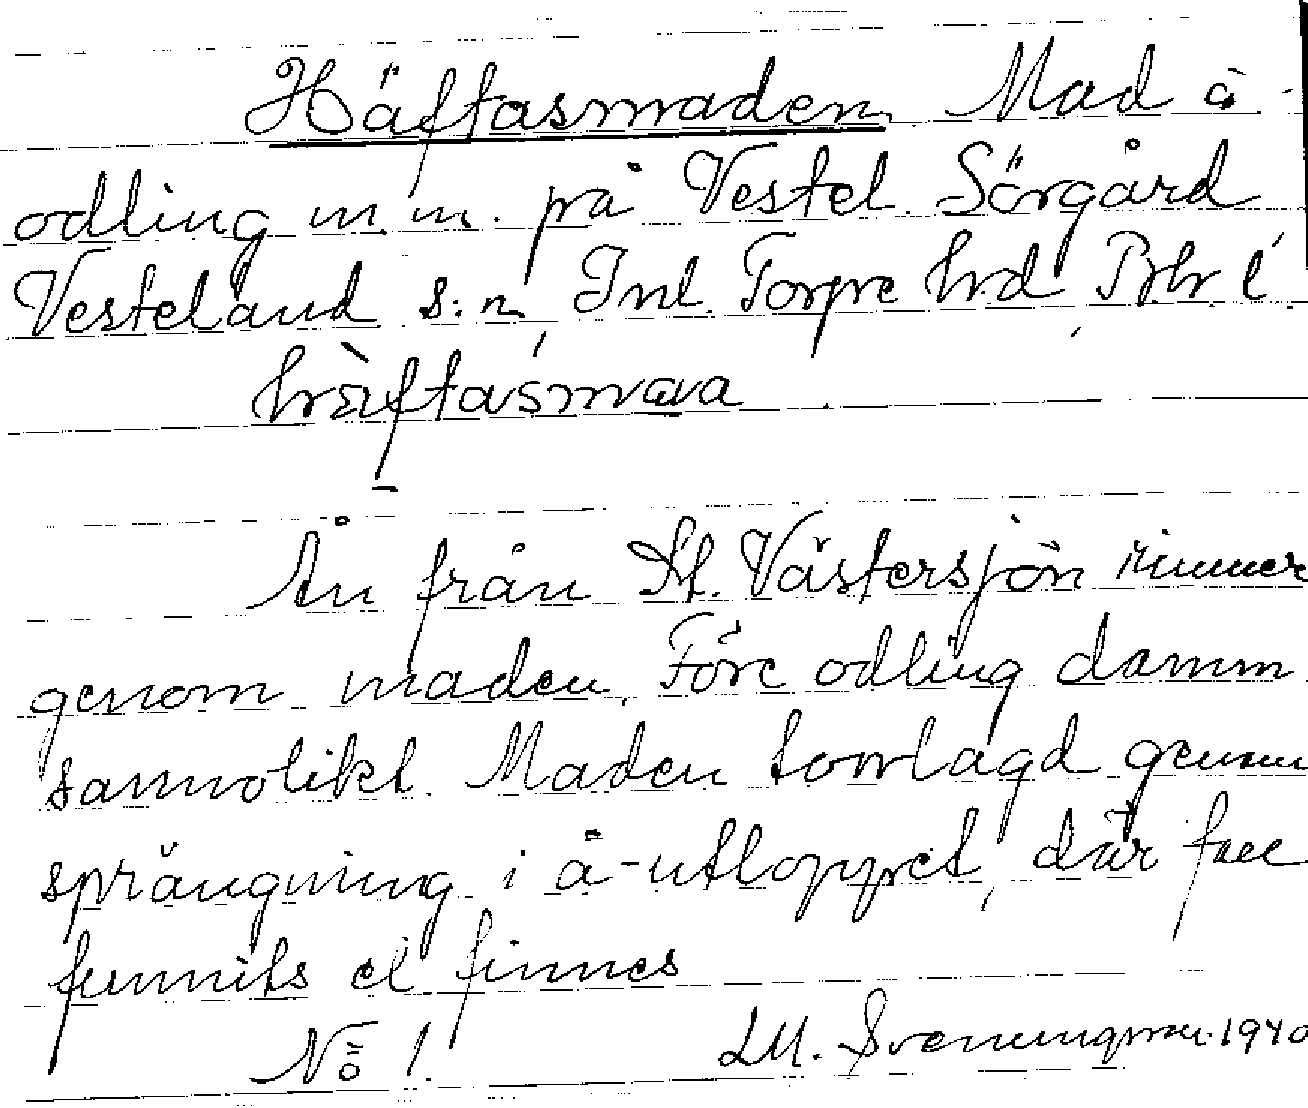 Häftasmaden. Mad å
odling m.m. på Vestel Sörgård
Vesteland s:n, Inl. Torpe hrd Bhl.
hräftasmava
Ån från St. Västersjön rinner
genom maden. Före odling damm
sannolikt. Maden torrlagd genom
sprängning i å-utloppet, där fall
funnits el finnes
No 1. LM. Svenungsson 1940